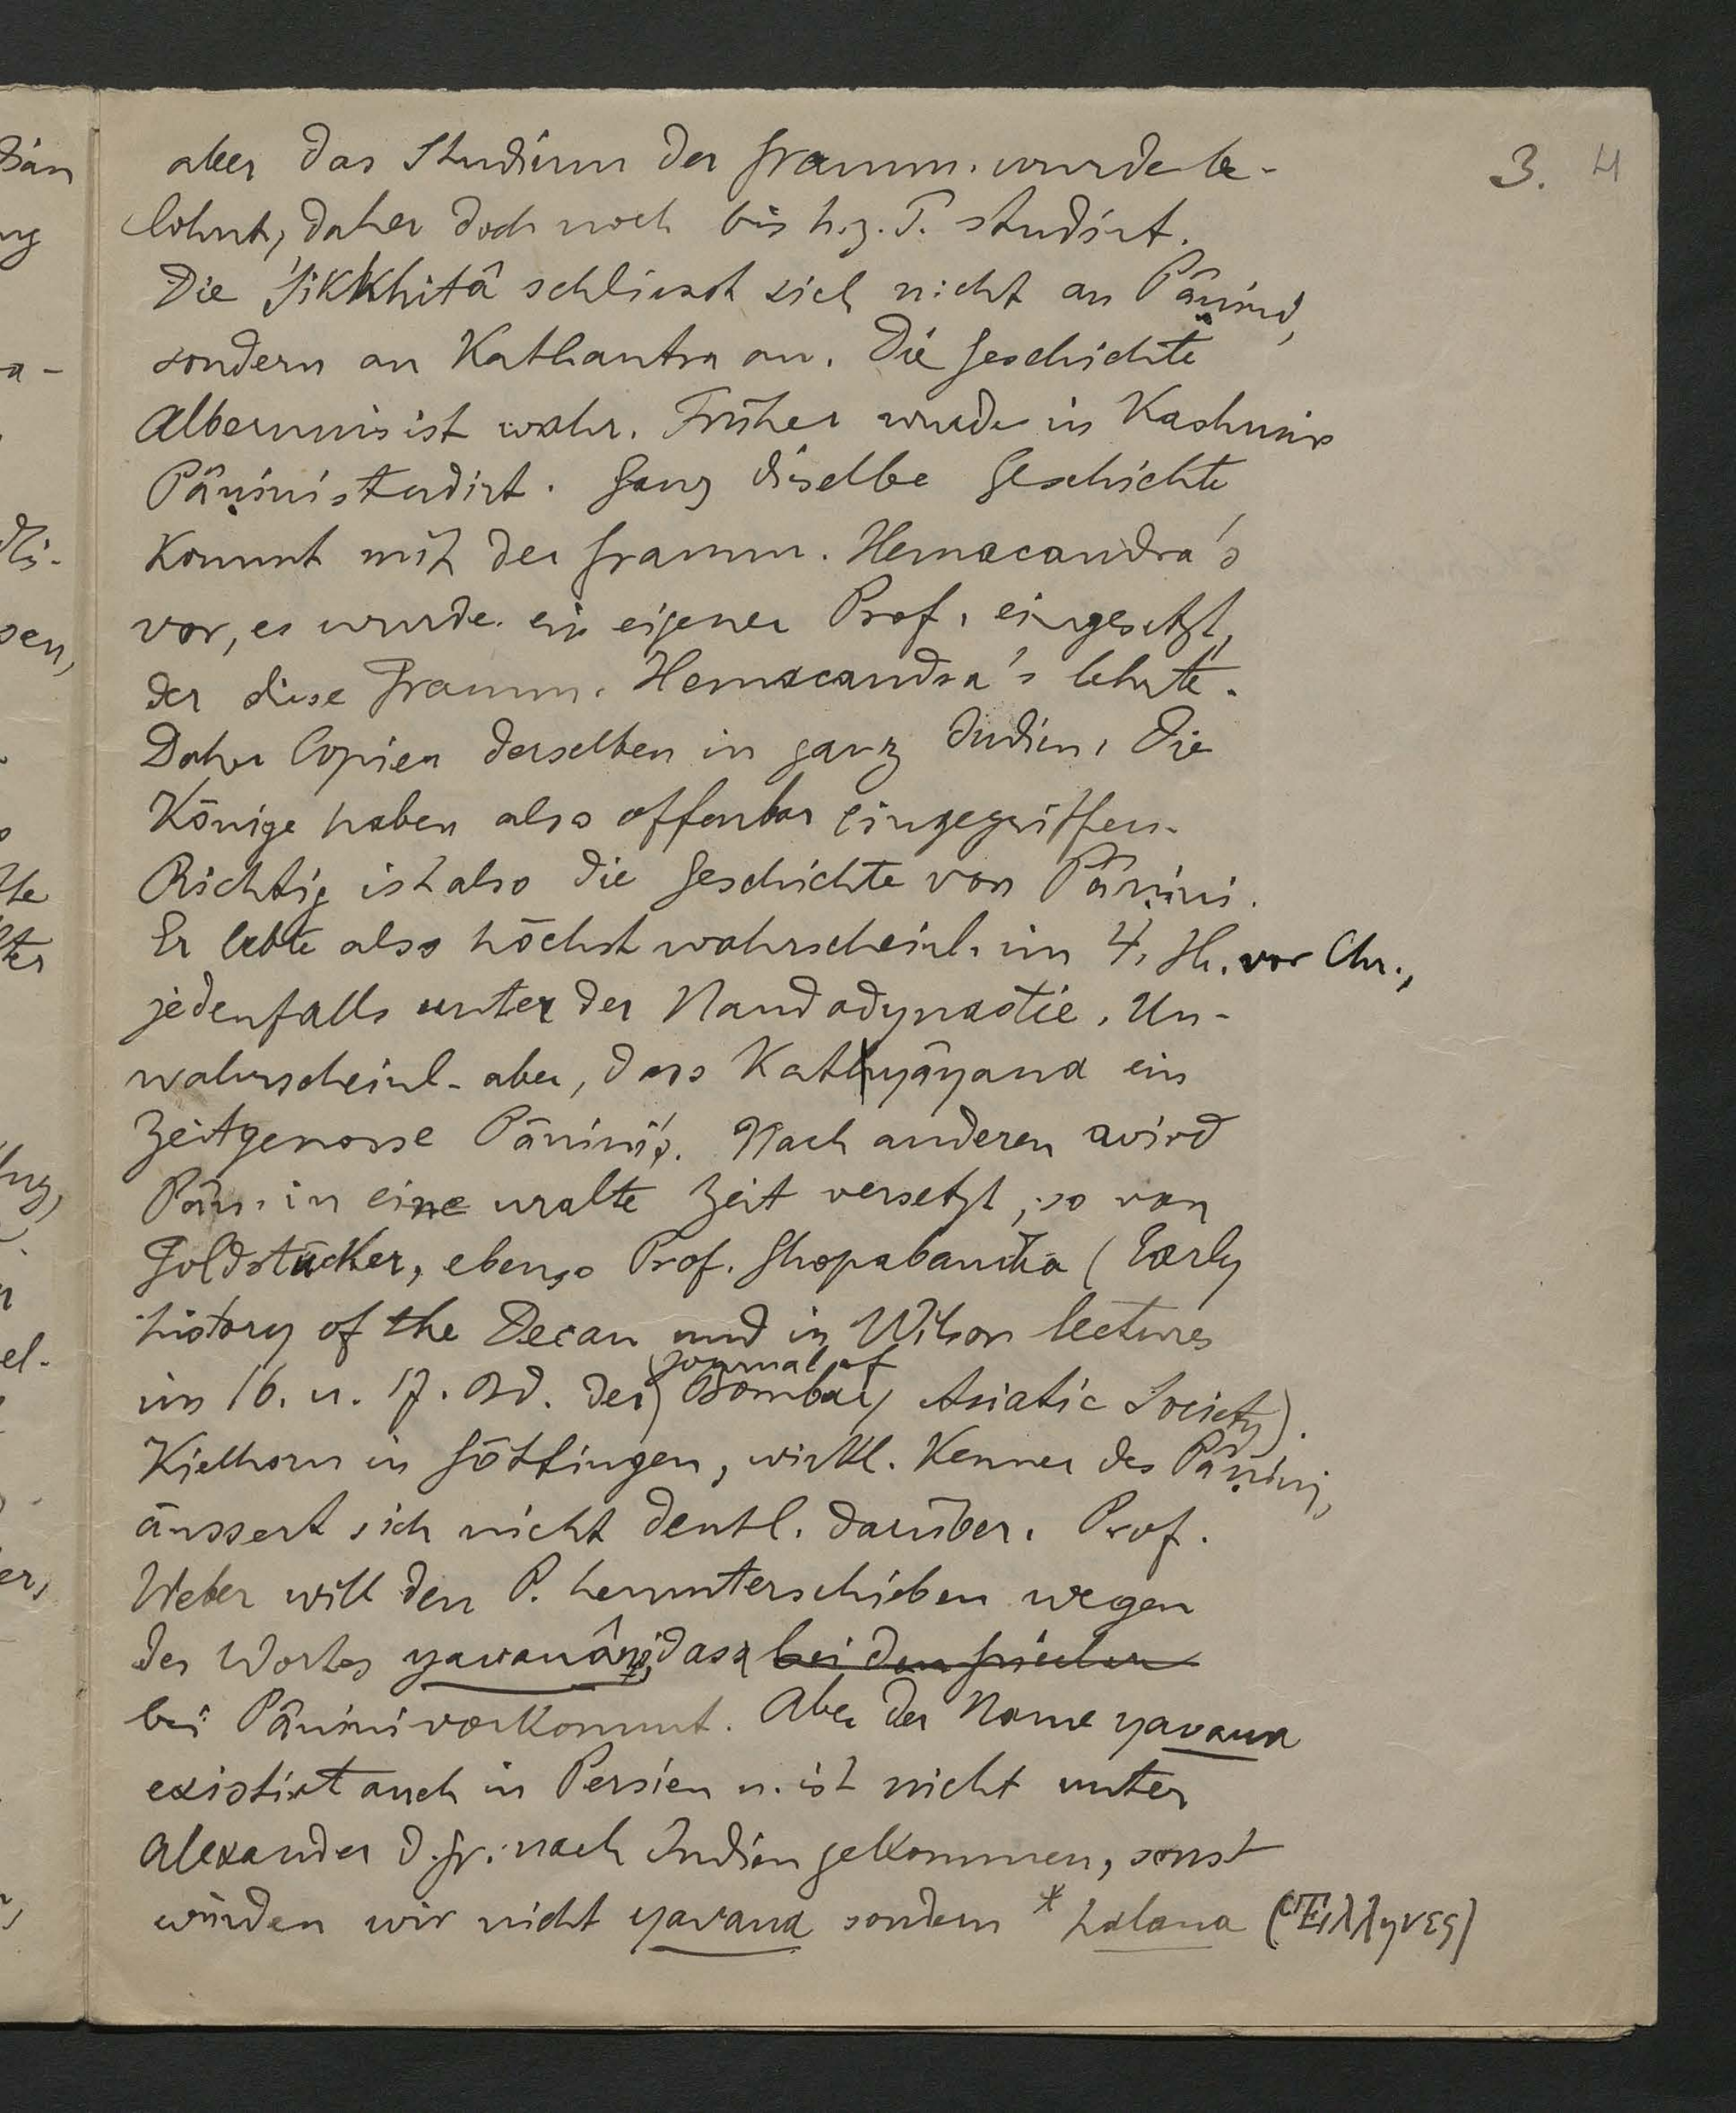 3. 4
aber das Studium der Gramm. wurde be-
lohnt, daher doch noch bis h.z.T. studirt.
Die Śikkhitâ schliesst sich nicht an Pâṇini,
sondern an Kathantra an. Die Geschichte
Alberunis ist wahr. Früher wurde in Kashmir
Pâṇini studirt. Ganz diselbe Geschichte
kommt mit der Gramm. Hemacandra's
vor, es wurde ein eigener Prof. eingesetzt,
der diese Gramm. Hemacandra's lehrte.
Daher Copien derselben in ganz Indien. Die
Könige haben also offenbar eingegriffen.
Richtig ist also die Geschichte von Pâṇini.
Er lebte also höchst wahrscheinl. im 4. Jh. vor Chr.,
jedenfalls unter der Nandadynastie. Un-
wahrscheinl. aber, dass Katyâyana ein
Zeitgenosse Pânini's. Nach anderen wird
Pân. in eine uralte Zeit versetzt, so von
Goldstücker, ebenso Prof. (Early
history of the Decan und in Wilson lectures
im 16. u. 17. Bd. der journal of Bombay Asiatic Society).
Kielhorn in Göttingen, wirkl. Kenner des Pâṇini,
äussert sich nicht deutl. darüber. Prof.
Weber will den P. herunterschieben wegen
des Wortes yavanâni, dass bei den Griechen
bei Pânini vorkommt. Aber der Name yavana
existirt auch in Persien u. ist nicht unter
Alexander d. Gr. nach Indien gekommen, sonst
würden wir nicht yavana sondern * halana (Ἕλληνες)